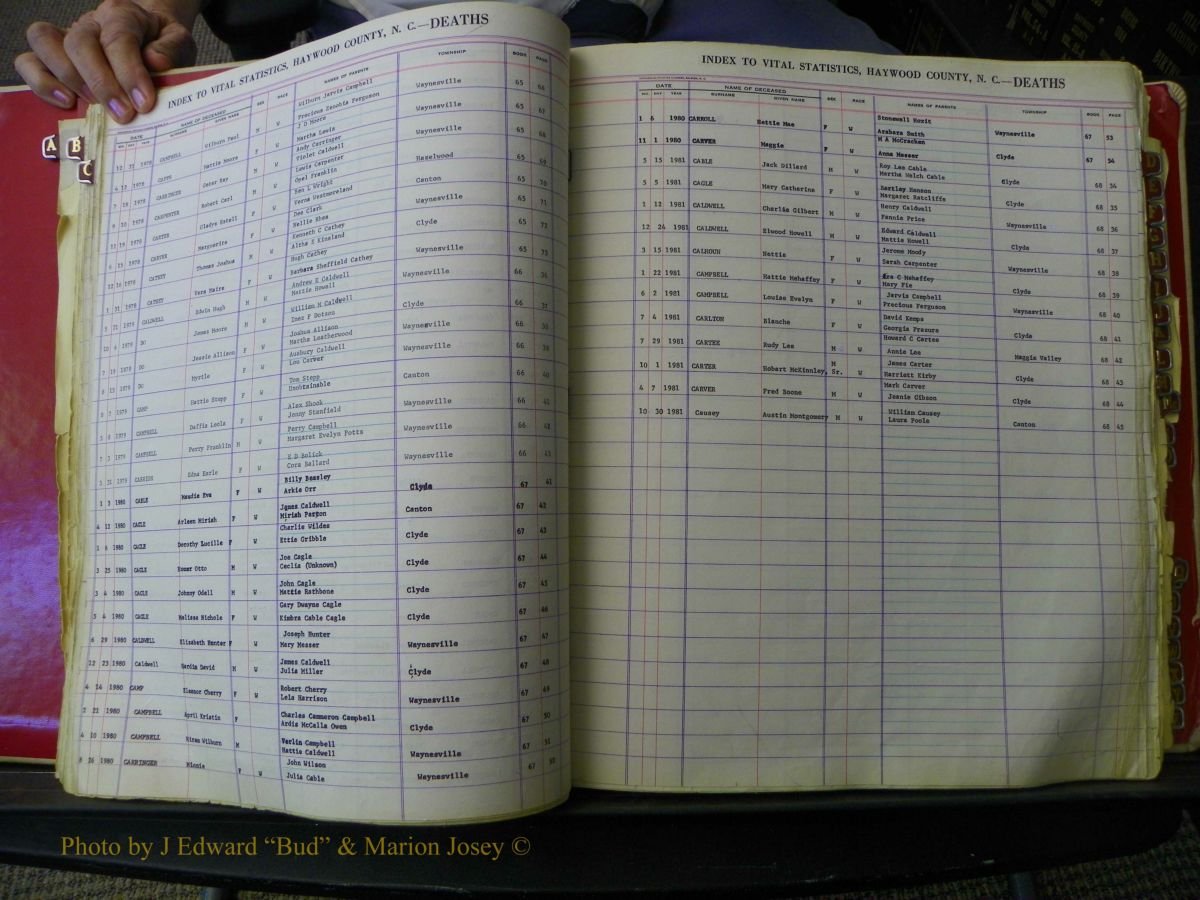 INDEX TO VITAL STATISTICS, HAYWOOD COUNTY, N. C.—DEATHS
DATE NAME OF DECEASED SEX RACE NAMES OF PARENTS TOWNSHIP BOOK PAGE
SURNAME GIVEN NAME
A
B
C
12 31 1978 CAMPBELL Wilburn Paul M W Wilburn Jarvis Campbell Waynesville 65 66
Precious Zenobia Ferguson
CAPPS Hattie Moore F W J D Moore Waynesville 65 67
Martha Lewis
CARRINGER Oscar Ray M Andy Carringer Waynesville 65 68
Violet Caldwell
CARPENTER Robert Carl M W Lewis Carpenter Hazelwood 65 69
Opal Franklin
CARTER Gladys Estell F W Ben L Wright Canton 65 70
Verna Westmoreland
CARVER Marguerite F W Dee Clark Waynesville 65 71
Nellie Rhea
CATHEY Thomas Joshua M Kenneth C Cathey Clyde 65 72
Altha E Kinsland
CATHEY Vera Maire F W Hugh Cathey Waynesville 65 73
Barbara Sheffield Cathey
CALDWELL Edwin Hugh M W Andrew E Caldwell Waynesville 66 36
Mattie Howell
DO James Moore M W William H Caldwell Clyde 66 37
Inez P Dotson
DO Jessie Allison F W Joshua Allison Waynesville 66 38
Martha Leatherwood
DO Myrtle F W Ausbury Caldwell Waynesville 66 39
Lou Carver
CAMP Hattie Stepp F W Tom Stepp Canton 66 40
Unobtainable
CAMPBELL Daffis Leola F W Alex Shook Waynesville 66 41
Jenny Stanfield
CAMPBELL Perry Franklin M W Perry Campbell Waynesville 66 42
Margaret Evelyn Potts
Edna Earle F W E D Bolick Waynesville 66 43
Cora Ballard
1 3 1980 CABLE Maudie Eva F W Billy Beasley Clyde 67 41
Arkie Orr
4 12 1980 CAGLE Arleen Miriah F W James Caldwell Canton 67 42
Miriah Parton
1 6 1980 CAGLE Dorothy Lucille F W Charlie Wildes Clyde 67 43
Ettie Gribble
3 25 1980 CAGLE Homer Otto M W Joe Cagle Clyde 67 44
Ceclia (Unknown)
3 4 1980 CAGLE Johnny Odell M W John Cagle Clyde 67 45
Mattie Rathbone
5 4 1980 CAGLE Malissa Nichole F W Gary Dwayne Cagle Clyde 67 46
Kimbra Cable Cagle
6 29 1980 CALDWELL Elizabeth Hunter F W Joseph Hunter Waynesville 67 47
Mary Messer
12 23 1980 Caldwell Hardin David M W James Caldwell Clyde 67 48
Julia Miller
4 14 1980 CAMP Eleanor Cherry F W Robert Cherry Waynesville 67 49
Lela Harrison
2 21 1980 CAMPBELL April Kristin F Charles Cammeron Campbell Clyde 67 50
Ardis McCalla Owen
4 10 1980 CAMPBELL Hiram Wilburn M Verlin Campbell Waynesville 67 51
Hattie Caldwell
8 26 1980 CARRINGER Minnie F W John Wilson Waynesville 67 52
Julia Cable
INDEX TO VITAL STATISTICS, HAYWOOD COUNTY, N. C.—DEATHS
DATE NAME OF DECEASED SEX RACE NAMES OF PARENTS TOWNSHIP BOOK PAGE
MO. DAY YEAR SURNAME GIVEN NAME
1 6 1980 CARROLL Bettie Mae F W Stonewall Hoxit Waynesville 67 53
Arabara Smith
11 1 1980 CARVER Maggie F W M A McCracken Clyde 67 54
Anna Messer
5 15 1981 CABLE Jack Dillard M W Roy Lee Cable Clyde 68 34
Martha Welch Cable
5 5 1981 CAGLE Mary Catherine F W Bartley Henson Waynesville 68 35
Margaret Ratcliffe
1 12 1981 CALDWELL Charlie Gilbert M W Henry Caldwell Waynesville 68 36
Fannie Price
12 24 1981 CALDWELL Elwood Howell M W Edward Caldwell Clyde 68 37
Mattie Howell
3 15 1981 CALHOUN Nettie F W Jerome Moody Waynesville 68 38
Sarah Carpenter
1 22 1981 CAMPBELL Hattie Mehaffey F W Ira C Mehaffey Clyde 68 39
Mary Pie
6 2 1981 CAMPBELL Louise Evelyn F W Jarvis Campbell Waynesville 68 40
Precious Ferguson
7 4 1981 CARLTON Blanche F W David Kemps Clyde 68 41
Georgia Presure
7 29 1981 CARTEE Rudy Lee M W Howard C Cartee Maggie Valley 68 42
Annie Lee
10 1 1981 CARTER Hobart McKinnley, Sr. M W James Carter Clyde 68 43
Harriett Kirby
4 7 1981 CARVER Fred Boone M W Mark Carver Clyde 68 44
Jeanie Gibson
10 30 1981 Causey Austin Montgomery M W William Causey Canton 68 45
Laura Poole
Photo by J Edward “Bud” & Marion Josey ©